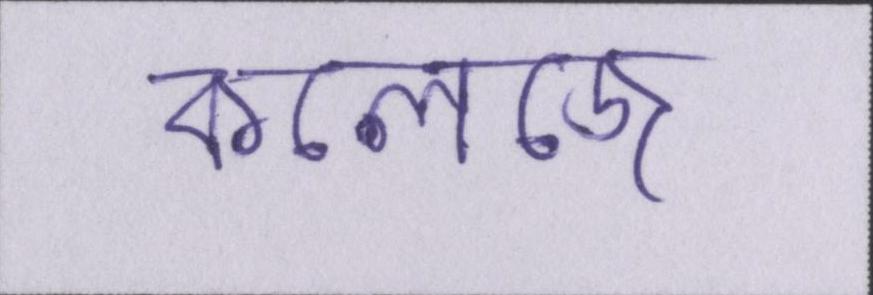 কলেজে